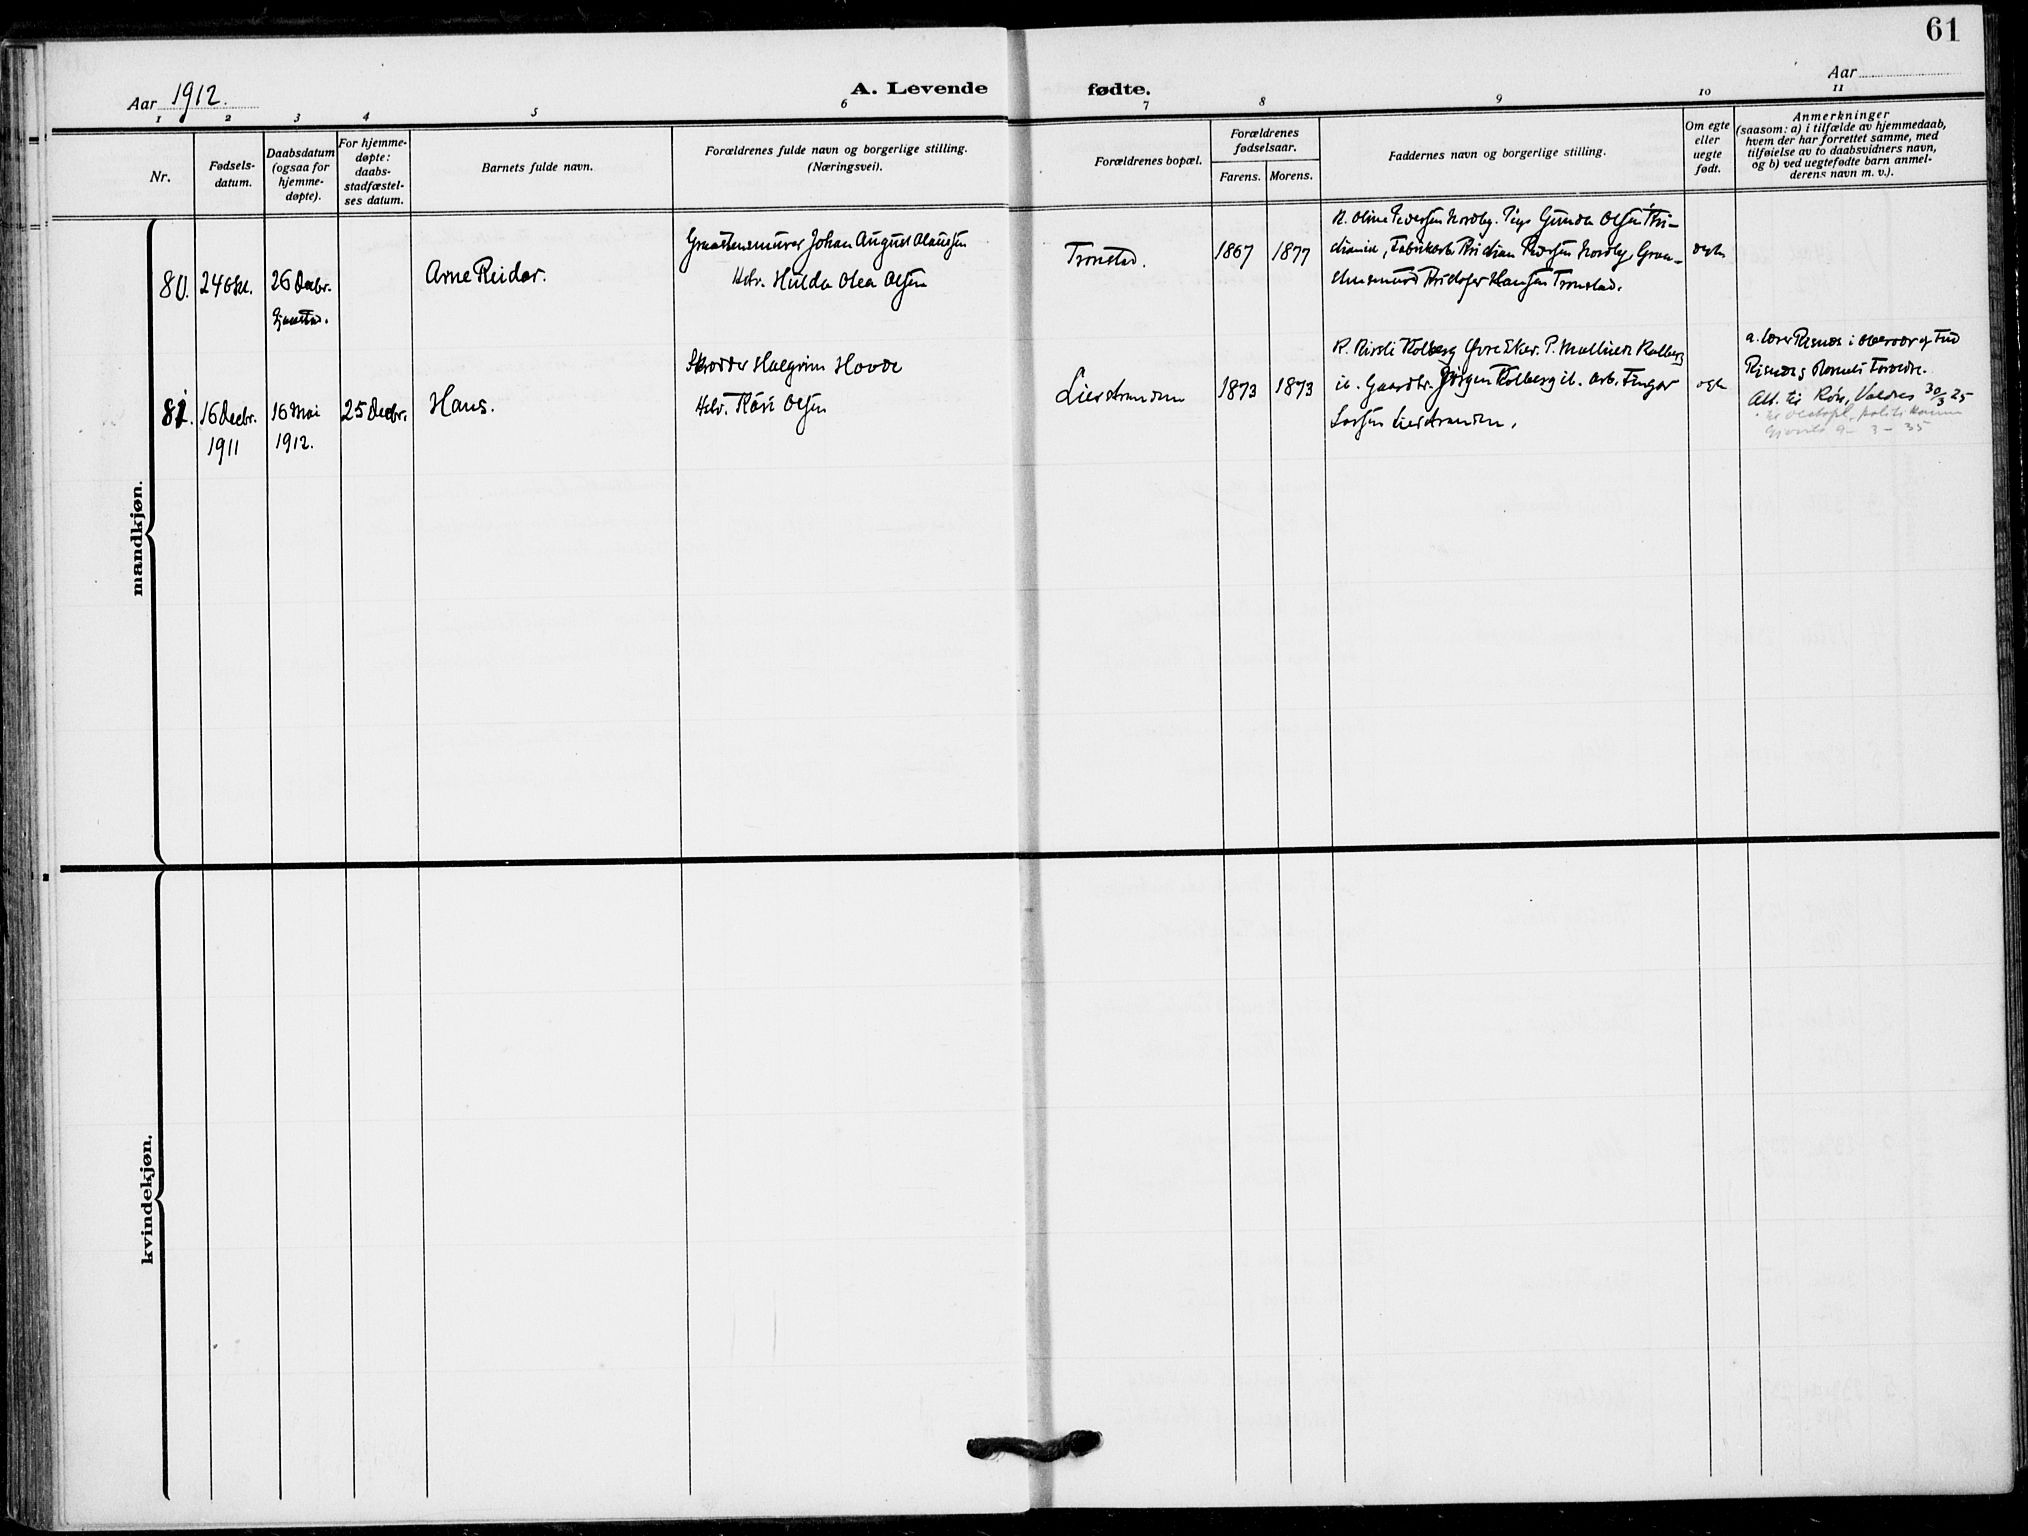 61
Aar 1912.
A. Levende fødte.
Aar
1 2 3 4 5 6 7 8 9 10 11
Nr.
Fødsels-
datum.
Daabsdatum
(ogsaa for
hjemme-
døpte).
For hjemme-
døpte:
daabs-
stadfæstel-
ses datum.
Barnets fulde navn.
Forældrenes fulde navn og borgerlige stilling.
(Næringsvei).
Forældrenes bopæl.
Forældrenes
fødselsaar.
Farens. Morens.
Faddernes navn og borgerlige stilling.
Om egte
eller
uegte
født.
Anmerkninger
(saasom: a) i tilfælde av hjemmedaab,
hvem der har forrettet samme, med
tilføielse av to daabsvidners navn,
og b) ved uegtefødte barn anmel-
derens navn m. v.).
mandkjøn.
80.
24 Okt.
26 Decbr.
Arne Reidar.
Graastensmurer Johan August Olaussen
Hstr. Hulda Olea Olsen
Tronstad.
1867
1877
K. Oline Pedersen Nordby. Pige Gunda Olsen Kri-
stiania, Fabrikarb. Kristian Pedersen Nordby, Graa-
stensmurer Kristofer Hansen Tronstad.
egte
81.
16 Decbr.
1911
16 Mai
1912.
25 Decbr.
Hans.
Skrædder Halgrim Hovde
Hstr. Kari Olsen
Lierstranden
1873
1873
K. Kirsti Kolberg Øvre Eker. P. Mathilde Kolberg
ib. Gaardbr. Jørgen Kolberg ib. Arb. Fingar
Larsen Lierstranden.
egte
a. lærer Risnæs i overvær af Fru
Risnæs & Barnets Forældre.
Att. til Røn, Valdres 30/3 25
9 - 3 - 35
kvindekjøn.